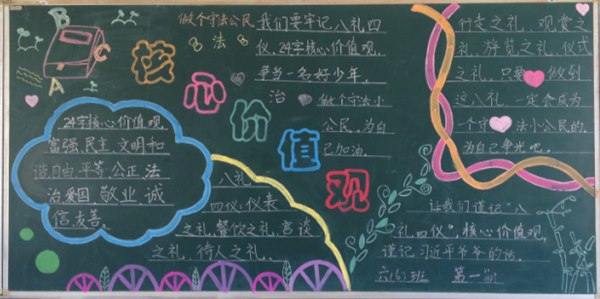 B
C
A
做个守法公民
法
治
核心价值观
24字核心价值观
富强民主文明和
谐自由平等公正法
治爱国,敬业,诚
信,友善。
我们要牢记八礼四
仪,24字核心价值观,
争当一名好少年。
做个守法小
公民,为自
己加油。
八礼
四仪:仪表
之礼,餐饮之礼,言谈
之礼,待人之礼、
行走之礼,观赏之
礼,游览之礼,仪式
之礼,只要做到
这八礼,一定会成为
一个守法小公民的,
为自己争光吧。
让我们谨记“八
礼四仪”,核心价值观,
谨记习近平爷爷的话。
班 第一期